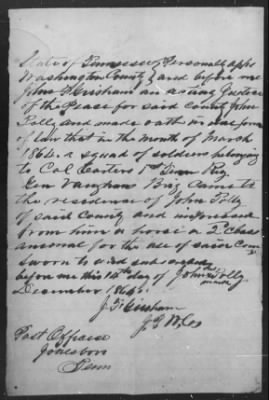 State of Tennessee } Personally app
Washington County } and before me
John F Grisham an acting Justice
of the Peace for said county John
Polly and made oath in due form
of law that in the month of March
1864. a squad of soldiers belonging
to Col Carters 1st Tenn Reg
Gen Vaughans Brig came to
the residence of John Polly
of said County and impressed
from him a horse a 2d class
animal for the use of said Com
sworn to and subscribed
before me this 14th day of John his Polly
December 1864. mark
J F Grisham
J P W Co
Post Office
Jonesboro
Tenn